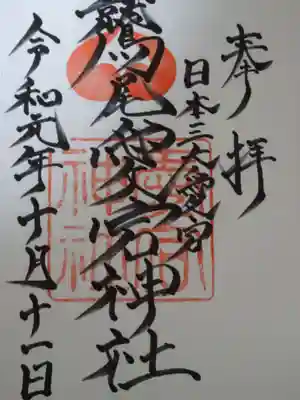 奉拝
日本三大愛宕
鷲尾愛宕神社
令和元年十月十一日